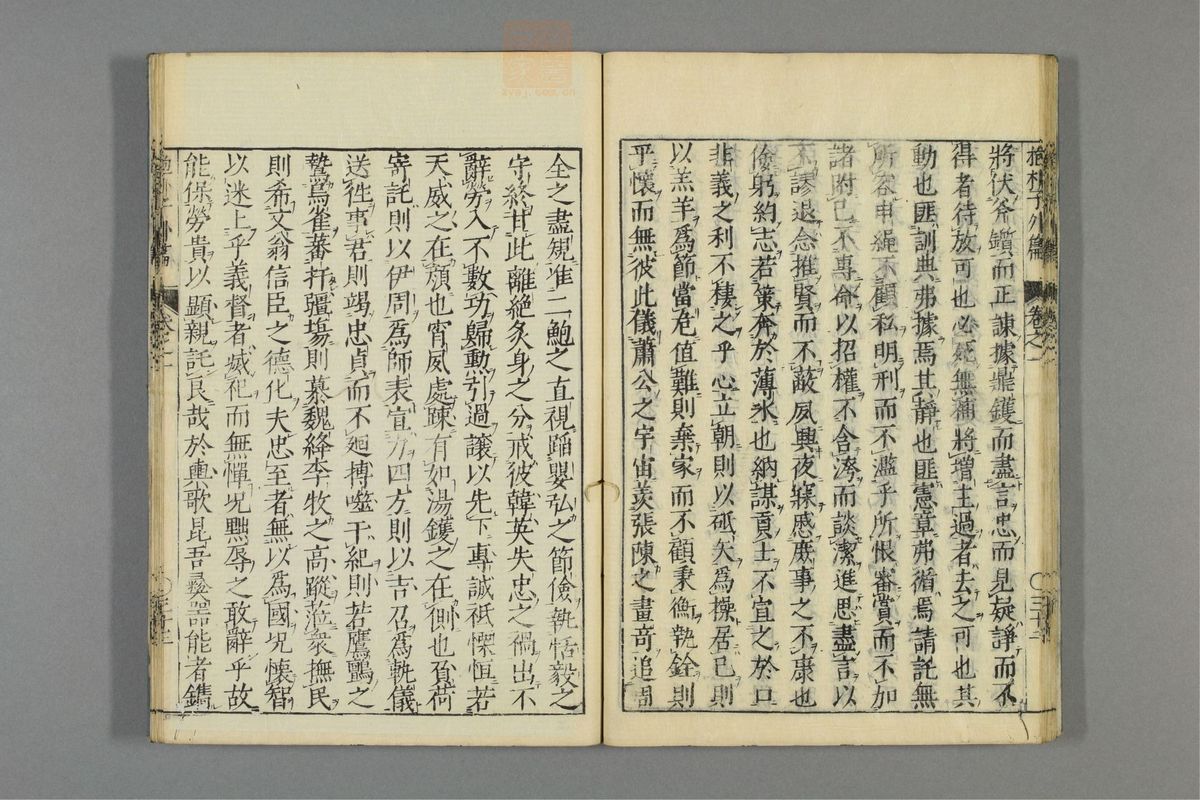 抱朴子外篇 卷之一 ○二十三
將伏斧鑕而正諫據鼎鑊而盡言忠而見疑諍而不
得者待放可也必死無補將增主過者去之可也其
動也匪訓典弗據焉其靜也匪憲章弗循焉請託無
所容申繩不顧私明刑而不濫乎所恨審賞而不加
諸附己不專命以招權不含洿而談潔進思盡言以
不謬退念推賢而不蔽夙興夜寐慼庶事之不康也
儉躬約志若策奔於薄氷也納謀貢士不宣之於口
非義之利不棲之乎心立朝則以砥矢爲操居己則
以羔羊爲節當危值難則棄家而不顧秉衡執銓則
平懷而無彼此儀蕭公之宇宙羨張陳之畫竒追周
全之盡規准二鮑之直視蹈嬰弘之節儉執恬毅之
守終甘此離絶炙身之分戒彼韓英失忠之禍出不
辭勞入不數功歸勲引過讓以先下專誠祗慄恒若
天威之在顏也宵夙處踈有如湯鑊之在側也負荷
寄託則以伊周爲師表宣力四方則以吉召爲軌儀
送徃事君則竭忠貞而不廻搏噬干紀則若鷹鸇之
鷙鳥雀蕃扞疆塲則慕魏絳李牧之高蹤蒞衆撫民
則希文翁信臣之德化夫忠至者無以爲國况懷智
以迷上乎義督者滅祀而無憚况黜辱之敢辭乎故
能保勞貴以顯親託良哉於輿歌昆吾彝器能者鐫